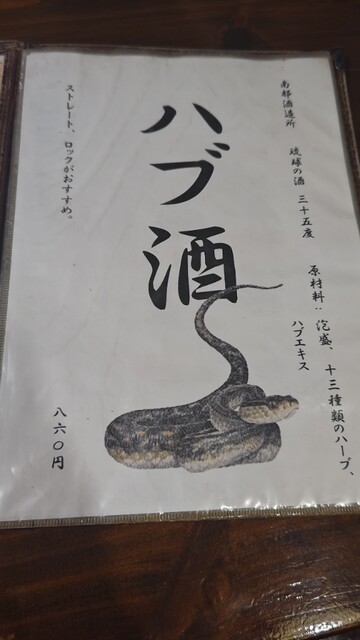 南都酒造所
琉球の酒 三十五度
原材料：泡盛、十三種類のハーブ、
ハブエキス
ハブ酒
ストレート、ロックがおすすめ。
八六〇円